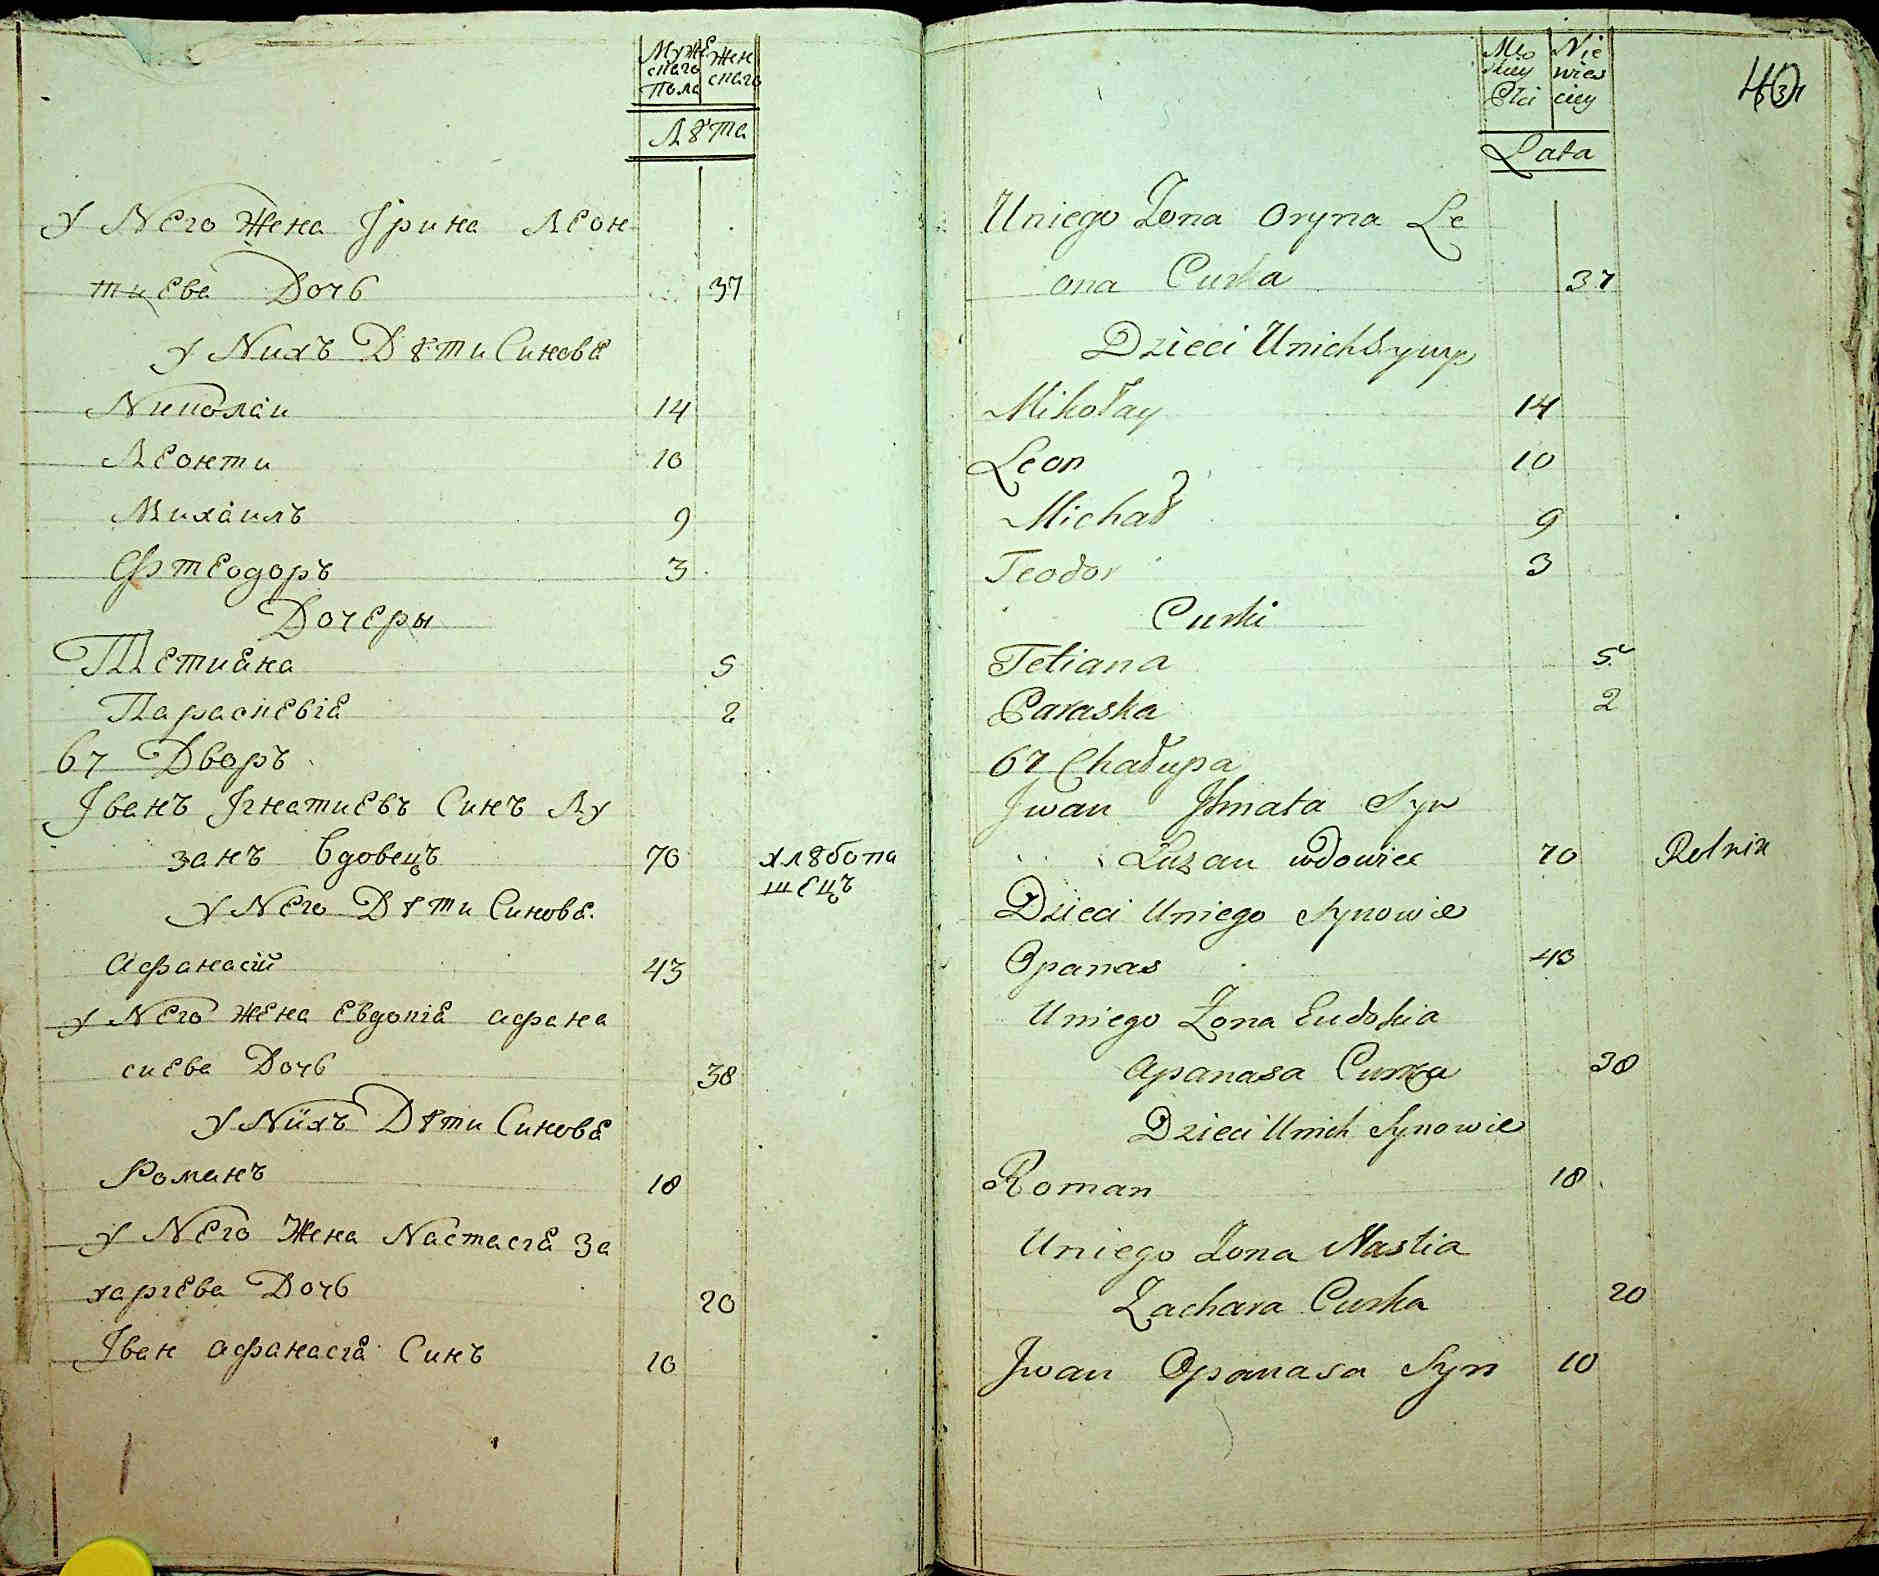 Мужескаго Пола
Женскаго
Лѣта
У Него Жена Ірина Леон
тиева Дочь 37
У Нихъ Дѣти Синове
Николаи 14
Леонти 10
Михаилъ 9
Фтеодоръ 3
Дочеры
Тетиана 5
Параскевіа 2
67 Дворъ
Іванъ Ігнатиевъ Синъ Лу
занъ Вдовецъ 70 хлѣбопа
шецъ
У Него Дѣти Синове
Афанасій 43
У Него Жена Евдокіа Афана
сиева Дочь 38
У Нихъ Дѣти Синове
Романъ 18
У Него Жена Настасіа За
харіева Дочь 20
Іван Афанасіа Синъ 10
Męskiey Płci
Niewiesciey
Lata
Uniego Zona Oryna Le
ona Curka 37
Dzieci Unich Synowie
Mikołay 14
Leon 10
Michał 9
Teodor 3
Curki
Tetiana 5
Paraska 2
67 Chałupa
Jwan Jhnata Syn
Łuzan wdowiec 70 Rolnik
Dzieci Uniego Synowie
Opanas 43
Uniego Zona Eudokia
Apanasa Curka 38
Dzieci Unich Synowie
Roman 18
Uniego Zona Nastia
Zachara Curka 20
Jwan Opanasa Syn 10